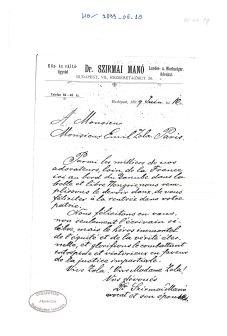 HO/ 1899.06.10
Hon- és váltó-
ügyvéd
Dr. SZIRMAI MANÓ
Landes- u. Wechselger.
Advokat
BUDAPEST, VII., ERZSÉBET-KÖRÚT
Budapest, 1899 Juin 10.
A Monsieur
Monsieur Emil Zola Paris.
Parmi les milliers de vos
adorateurs, loin de la France,
ici au bord du Danube dans la
belle et libre Hongrie nous rem-
plissons le devoir doux, de vous
féliciter à la rentrée dans votre
patrie.
Nous félicitons en vous,
non seulement l'écrivain cé-
lèbre, mais le héros immortel
de l'équité et de la vérité éter-
nelle, et glorifions le combattant
intrépide et victorieux en faveur
de la justice impartiale.
Vive Zola! Vive Madame Zola!
Vos dévoués
Dr Szirmai Manó
avocat et son épouse